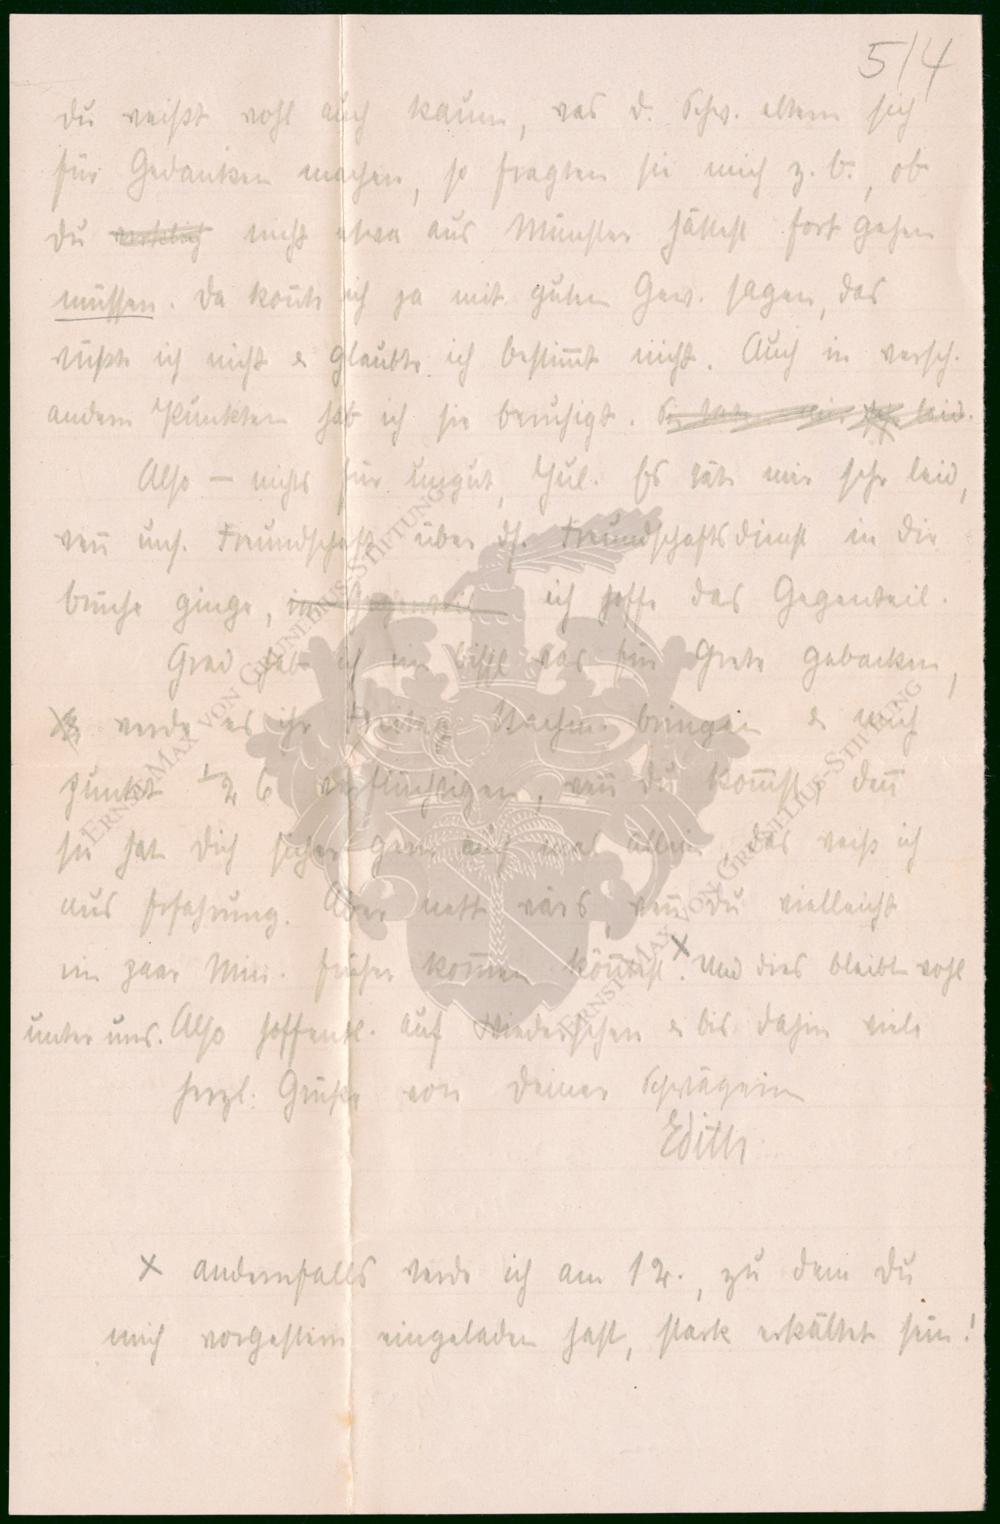 5/4
du weißt wohl auch kaum, was d. Schw. eltern sich
für Gedanken machen, so fragten sie mich z. B., ob
du nicht etwa aus Münster hättest fort gehen
müssen. Da kon̄te ich ja mit gutem Gew. sagen, das
wüßte ich nicht & glaubte ich bestim̄t nicht. Auch in versch.
andern Punkten hab ich sie beruhigt. Es täte mir sehr leid.
Also – nichts für ungut, Jul. Es täte mir sehr leid,
wen̄ uns. Freundschaft über ds. Freundschaftsdienst in die
brüche ginge, im Gegenteil ich hoffe das Gegenteil.
Grad hab ich ein bissl was für Grete gebacken,
werde es ihr Freitag Nachm. bringen & mich
punkt ½ 6 verflüchtigen, wen̄ du kom̄st, den̄
sie hat dich sicher gern auch mal allein, das weiß ich
aus Erfahrung. Aber nett wärs, wen̄ du vielleicht
ein paar Min. früher kom̄en kön̄test. x Und dies bleibt wohl
unter uns. Also hoffentl. auf Wiedersehen & bis dahin viele
herzl. Grüße von deiner Schwägerin
Edith
x andernfalls werde ich am 12., zu dem du
mich vorgestern eingeladen hast, stark erkältet sein!
ERNST MAX VON GRUNELIUS-STIFTUNG
ERNST MAX VON GRUNELIUS-STIFTUNG